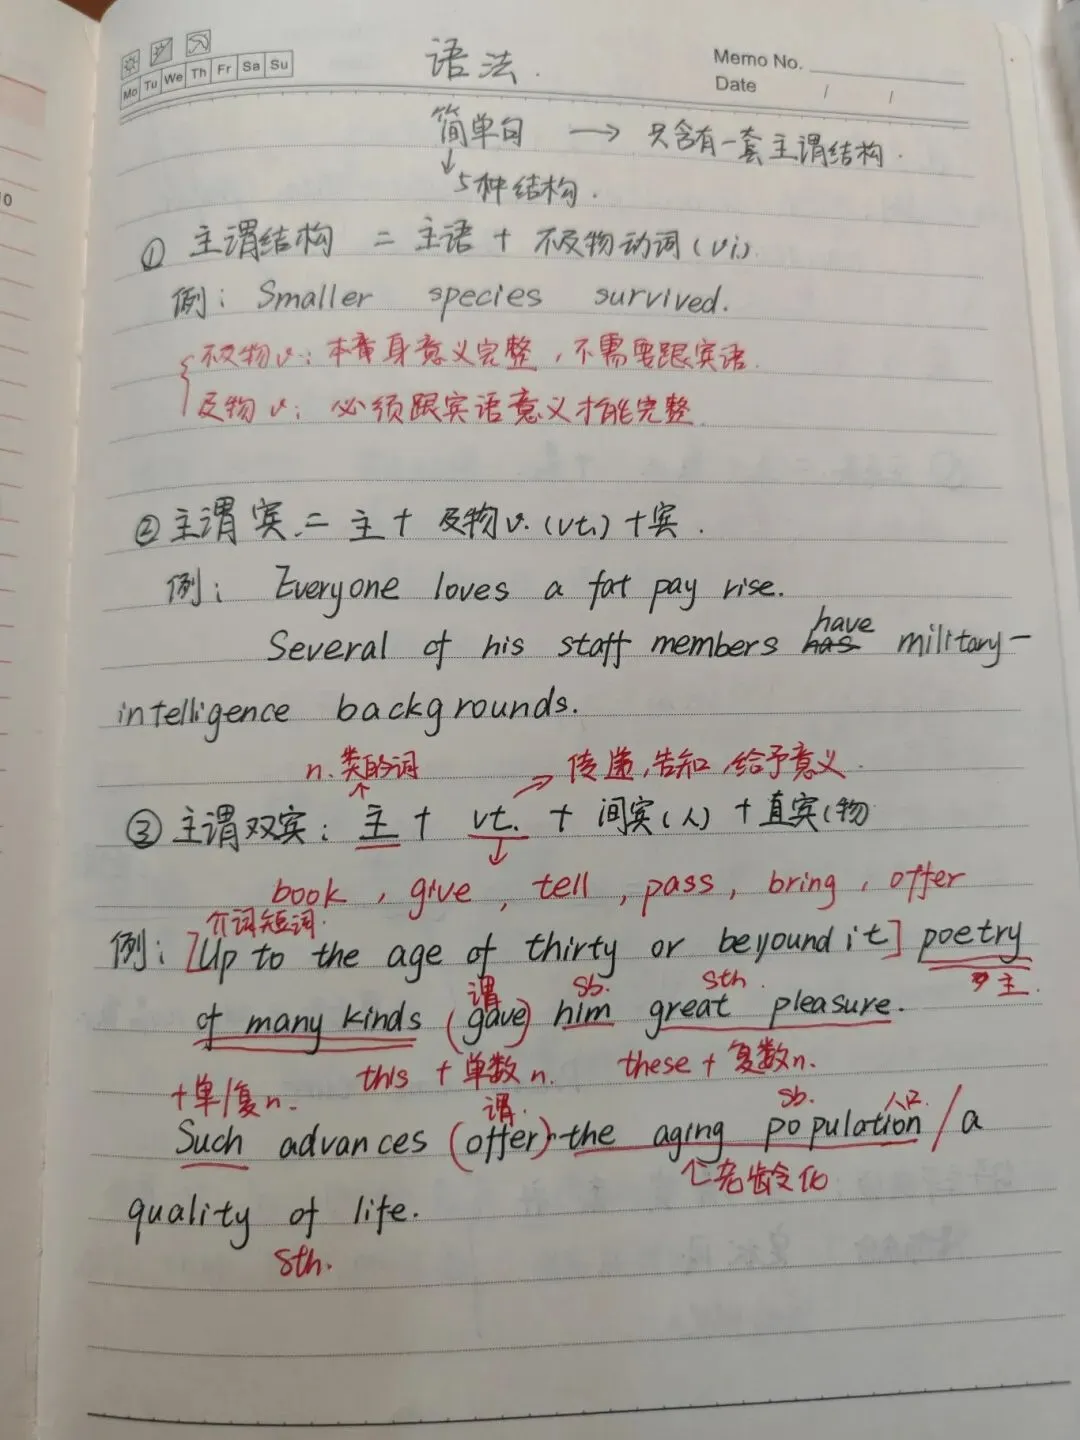 Mo Tu We Th Fr Sa Su
语法.
Memo No.
Date / /
简单句 → 只含有一套主谓结构.
↓5种结构.
① 主谓结构 = 主语 + 不及物动词(vi).
例: Smaller species survived.
不及物v: 本身意义完整,不需要跟宾语.
及物v: 必须跟宾语意义才能完整.
② 主谓宾 = 主 + 及物v.(vt.) + 宾.
例: Everyone loves a fat pay rise.
have
Several of his staff members has military-
intelligence backgrounds.
n.类的词 → 传递,告知,给予意义.
③ 主谓双宾: 主 + vt. + 间宾(人) + 直宾(物
book, give, tell, pass, bring, offer
介词短词.
例: [Up to the age of thirty or beyound it] poetry
谓 sb. sth. 主.
of many kinds (gave) him great pleasure.
+单/复n. this + 单数n. these + 复数n.
谓. sb. 人口.
Such advances (offer) the aging population / a
老龄化
quality of life.
sth.